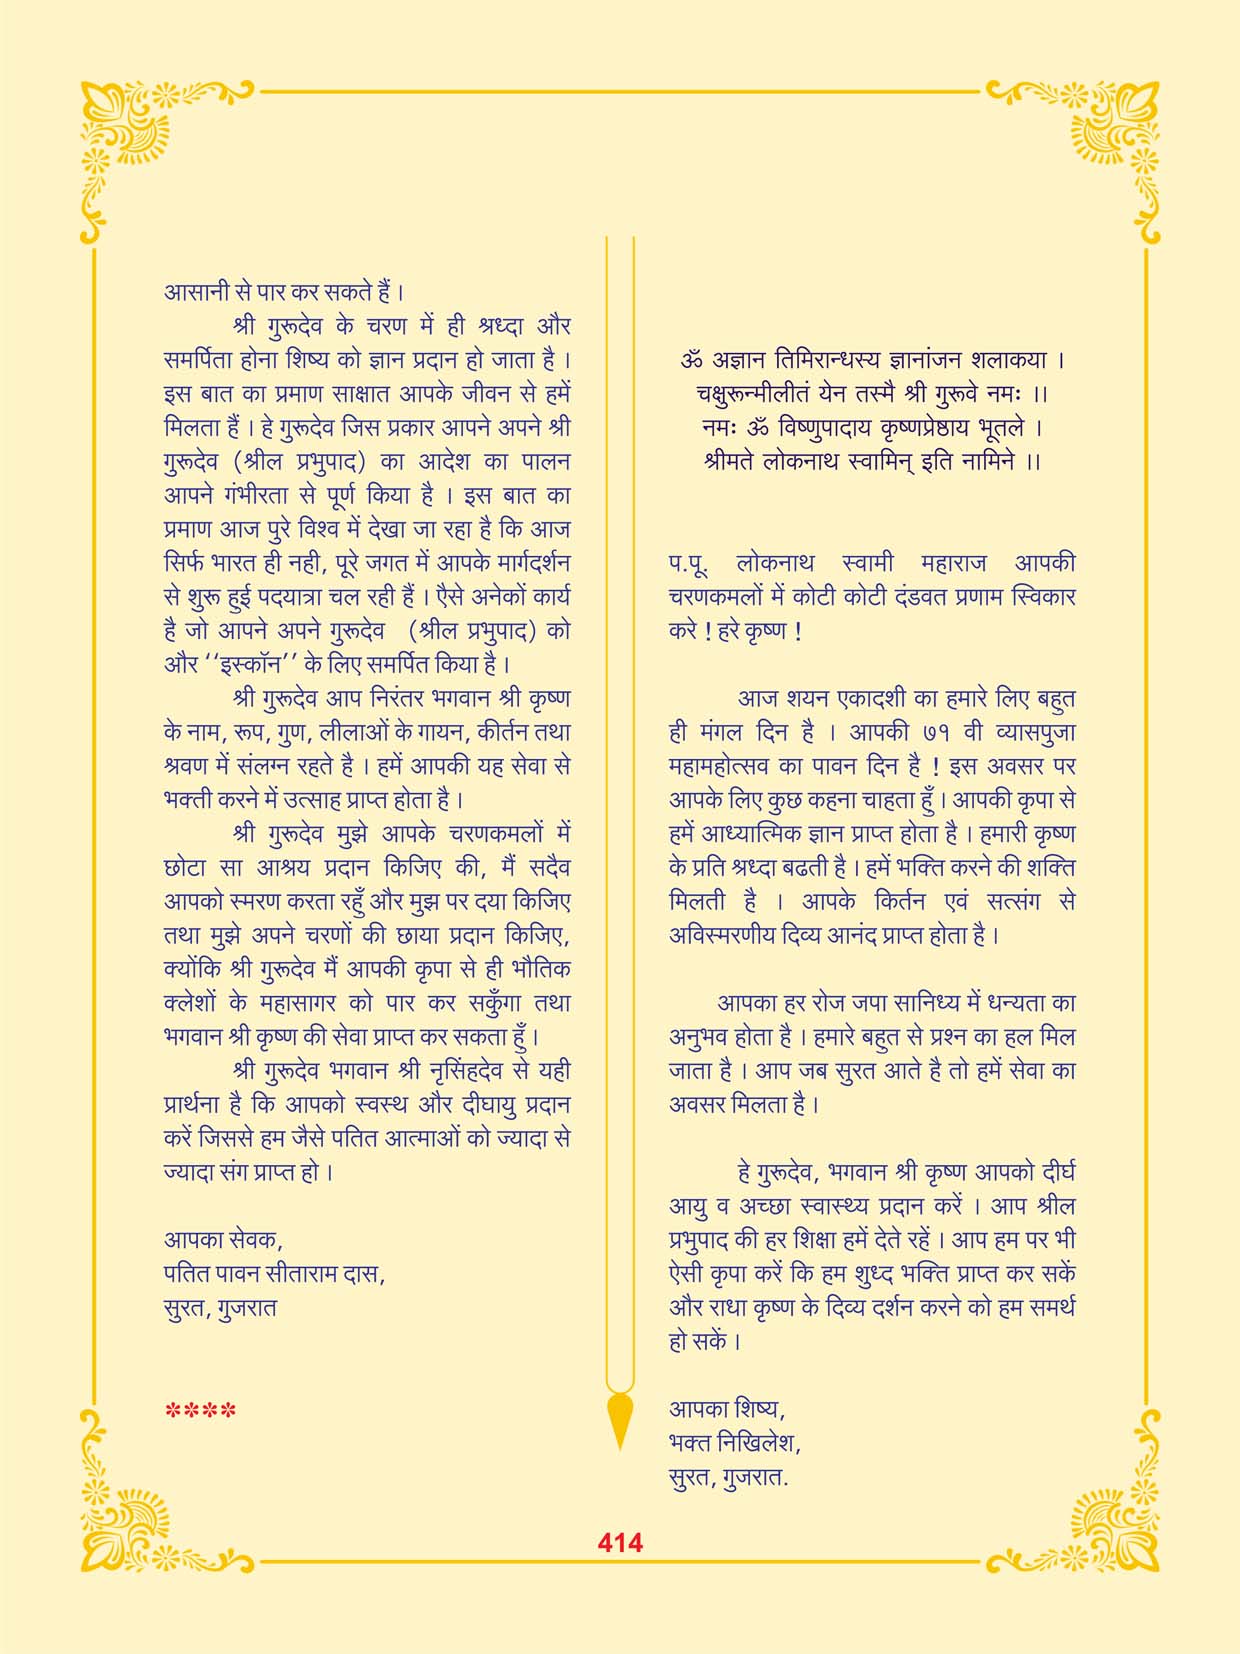 आसानी से पार कर सकते हैं ।
श्री गुरूदेव के चरण में ही श्रध्दा और
समर्पिता होना शिष्य को ज्ञान प्रदान हो जाता है ।
इस बात का प्रमाण साक्षात आपके जीवन से हमें
मिलता हैं । हे गुरूदेव जिस प्रकार आपने अपने श्री
गुरूदेव (श्रील प्रभुपाद) का आदेश का पालन
आपने गंभीरता से पूर्ण किया है । इस बात का
प्रमाण आज पुरे विश्व में देखा जा रहा है कि आज
सिर्फ भारत ही नही, पूरे जगत में आपके मार्गदर्शन
से शुरू हुई पदयात्रा चल रही हैं । एैसे अनेकों कार्य
है जो आपने अपने गुरूदेव (श्रील प्रभुपाद) को
और ‘‘इस्कॉन’’ के लिए समर्पित किया है ।
श्री गुरूदेव आप निरंतर भगवान श्री कृष्ण
के नाम, रूप, गुण, लीलाओं के गायन, कीर्तन तथा
श्रवण में संलग्न रहते है । हमें आपकी यह सेवा से
भक्ती करने में उत्साह प्राप्त होता है ।
श्री गुरूदेव मुझे आपके चरणकमलों में
छोटा सा आश्रय प्रदान किजिए की, मैं सदैव
आपको स्मरण करता रहुँ और मुझ पर दया किजिए
तथा मुझे अपने चरणों की छाया प्रदान किजिए,
क्योंकि श्री गुरूदेव मैं आपकी कृपा से ही भौतिक
क्लेशों के महासागर को पार कर सकुँगा तथा
भगवान श्री कृष्ण की सेवा प्राप्त कर सकता हुँ ।
श्री गुरूदेव भगवान श्री नृसिंहदेव से यही
प्रार्थना है कि आपको स्वस्थ और दीघायु प्रदान
करें जिससे हम जैसे पतित आत्माओं को ज्यादा से
ज्यादा संग प्राप्त हो ।
आपका सेवक,
पतित पावन सीताराम दास,
सुरत, गुजरात
****
ॐ अज्ञान तिमिरान्धस्य ज्ञानांजन शलाकया ।
चक्षुरून्मीलीतं येन तस्मै श्री गुरूवे नमः ।।
नमः ॐ विष्णुपादाय कृष्णप्रेष्ठाय भूतले ।
श्रीमते लोकनाथ स्वामिन् इति नामिने ।।
प.पू. लोकनाथ स्वामी महाराज आपकी
चरणकमलों में कोटी कोटी दंडवत प्रणाम स्विकार
करे ! हरे कृष्ण !
आज शयन एकादशी का हमारे लिए बहुत
ही मंगल दिन है । आपकी ७१ वी व्यासपुजा
महामहोत्सव का पावन दिन है ! इस अवसर पर
आपके लिए कुछ कहना चाहता हुँ । आपकी कृपा से
हमें आध्यात्मिक ज्ञान प्राप्त होता है । हमारी कृष्ण
के प्रति श्रध्दा बढती है । हमें भक्ति करने की शक्ति
मिलती है । आपके किर्तन एवं सत्संग से
अविस्मरणीय दिव्य आनंद प्राप्त होता है ।
आपका हर रोज जपा सानिध्य में धन्यता का
अनुभव होता है । हमारे बहुत से प्रश्न का हल मिल
जाता है । आप जब सुरत आते है तो हमें सेवा का
अवसर मिलता है ।
हे गुरूदेव, भगवान श्री कृष्ण आपको दीर्घ
आयु व अच्छा स्वास्थ्य प्रदान करें । आप श्रील
प्रभुपाद की हर शिक्षा हमें देते रहें । आप हम पर भी
ऐसी कृपा करें कि हम शुध्द भक्ति प्राप्त कर सकें
और राधा कृष्ण के दिव्य दर्शन करने को हम समर्थ
हो सकें ।
आपका शिष्य,
भक्त निखिलेश,
सुरत, गुजरात.
414